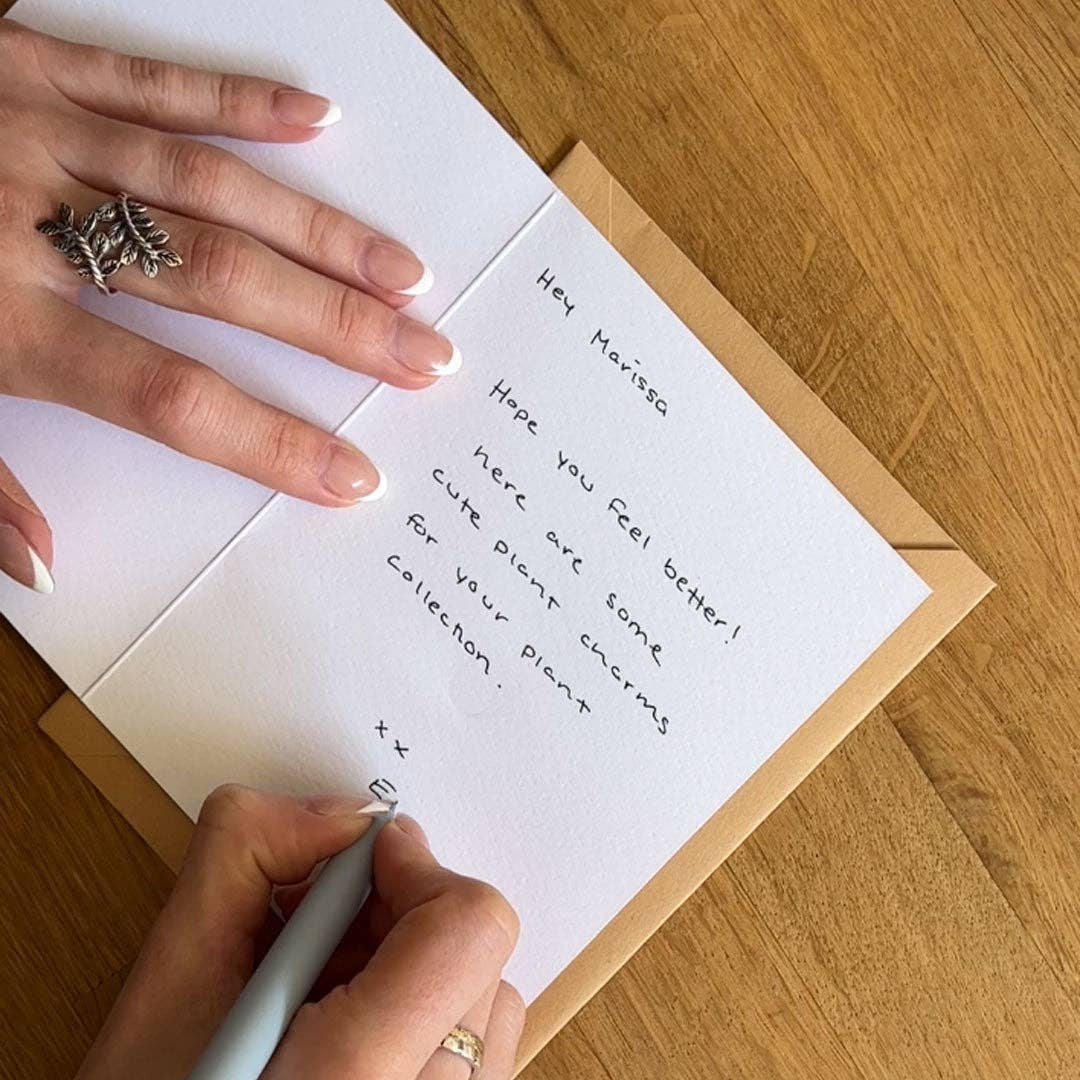 Hey Marissa
Hope you feel better!
here are some
cute plant charms
for your plant
collection.
xx
E